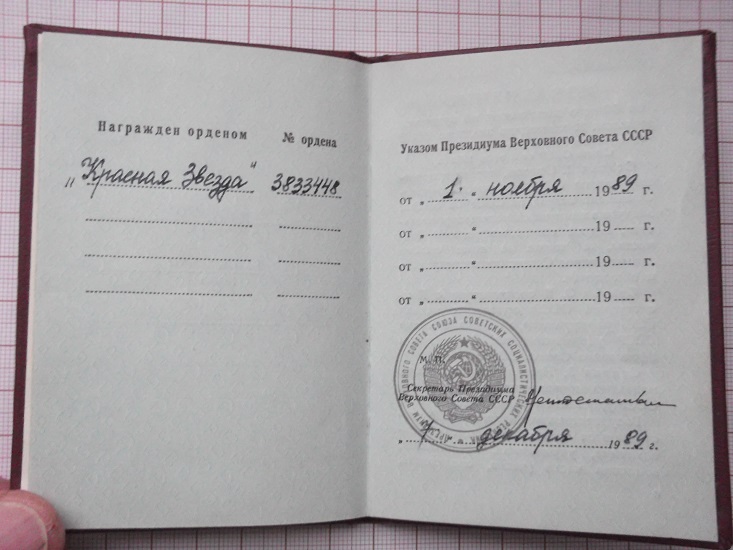 Награжден орденом № ордена
„Красная Звезда“ 3833448
Указом Президиума Верховного Совета СССР
от „ 1. “ ноября 1989 г.
от „ “ 19 г.
от „ “ 19 г.
от „ “ 19 г.
М. П.
Секретарь Президиума
Верховного Совета СССР
„ “ декабря 1989 г.
ПРЕЗИДИУМ ВЕРХОВНОГО СОВЕТА СОЮЗА СОВЕТСКИХ СОЦИАЛИСТИЧЕСКИХ